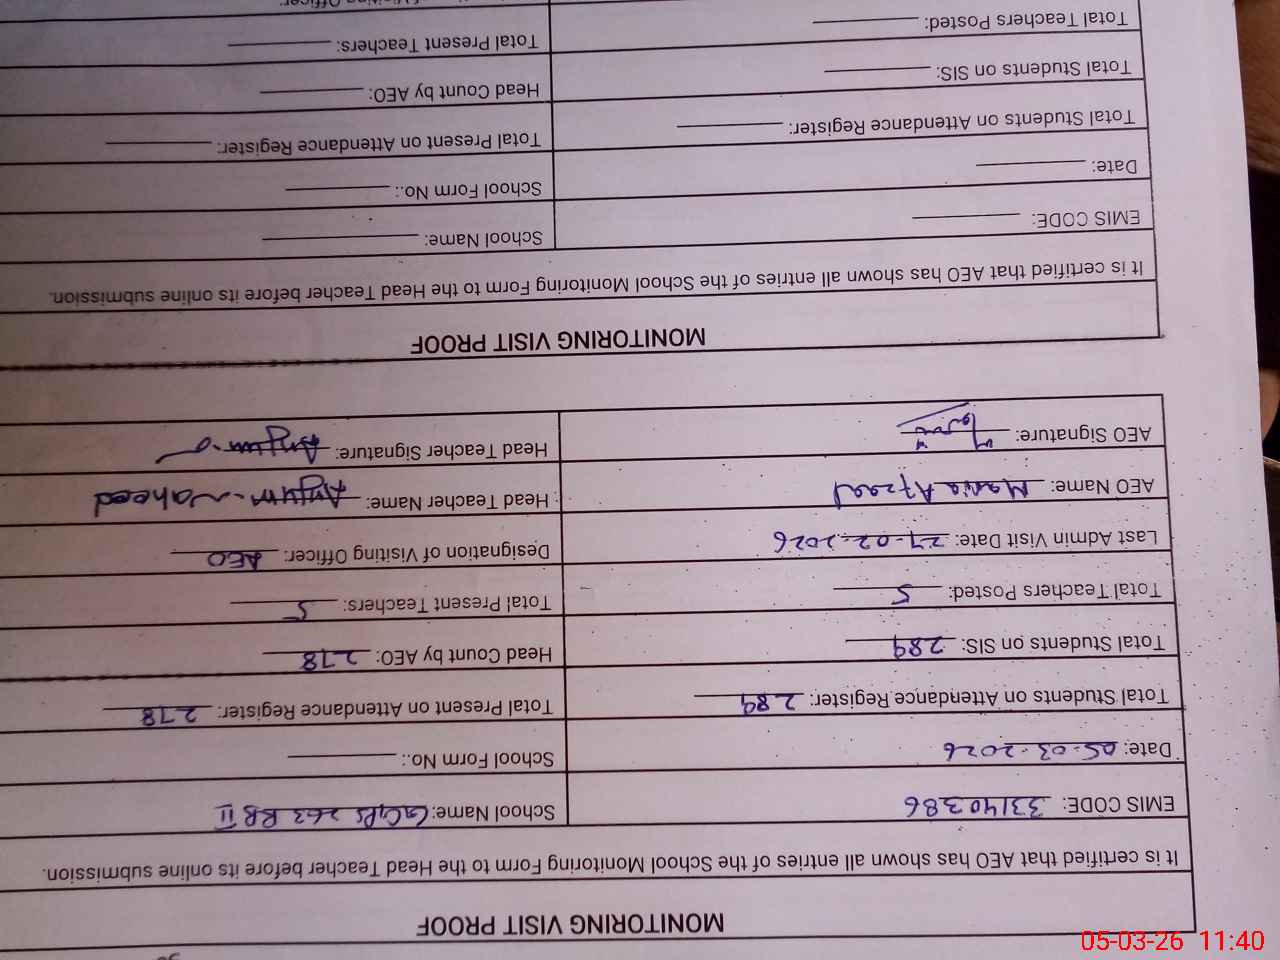 MONITORING VISIT PROOF
It is certified that AEO has shown all entries of the School Monitoring Form to the Head Teacher before its online submission.
EMIS CODE: 33140386 School Name: GGPS 263 RB II
Date: 05-03-2026 School Form No.:
Total Students on Attendance Register: 289 Total Present on Attendance Register: 278
Total Students on SIS: 289 Head Count by AEO: 278
Total Teachers Posted: 5 Total Present Teachers: 5
Last Admin Visit Date: 27-02-2026 Designation of Visiting Officer: AEO
AEO Name: Maria Afzaal Head Teacher Name: Anjum Naheed
AEO Signature: Head Teacher Signature: Anjum
MONITORING VISIT PROOF
It is certified that AEO has shown all entries of the School Monitoring Form to the Head Teacher before its online submission.
EMIS CODE: School Name:
Date: School Form No.:
Total Students on Attendance Register: Total Present on Attendance Register:
Total Students on SIS: Head Count by AEO:
Total Teachers Posted: Total Present Teachers:
05-03-26 11:40